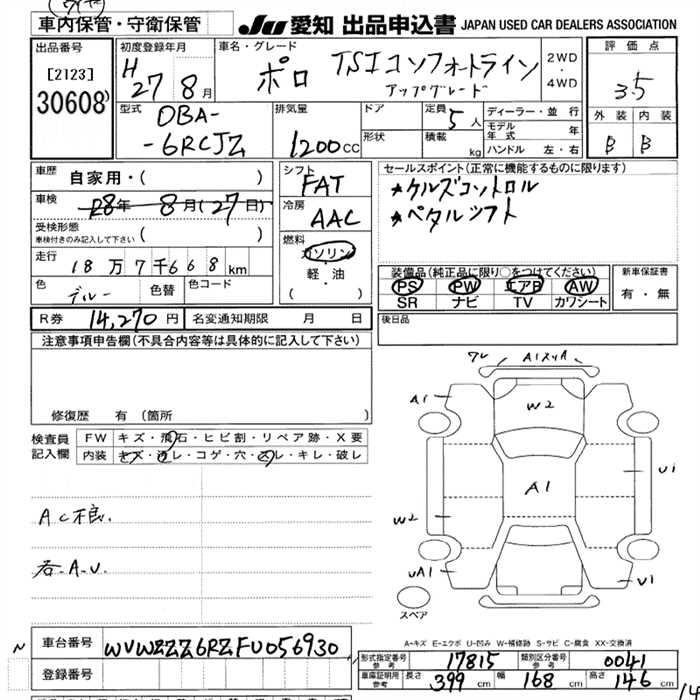 車内保管・守衛保管
JU 愛知 出品申込書 JAPAN USED CAR DEALERS ASSOCIATION
出品番号
[2123]
30608
初度登録年月
H 27 8月
車名・グレード
ポロ TSIコンフォートライン
アップグレード
2WD
・
4WD
評価点
3.5
外装 内装
B B
型式
DBA-
-6RCJZ
排気量
1200CC
ドア
形状
定員 5人
積載 kg
ディーラー・並行
モデル年式 年
ハンドル 左・右
車歴 自家用・( )
車検 28年 8月(27日)
受検形態
車検付きのみ記入して下さい ( )
走行 18万7千668km
色 ブルー 色替 色コード
シフト
FAT
冷房
AAC
燃料
ガソリン
軽・油
( ・ )
セールスポイント(正常に機能するものに限ります)
★クルズコントロル
★ペタルシフト
装備品(純正品に限り○をつけてください)
PS PW エアB AW
SR ナビ TV カワシート
新車保証書
有・無
R券 14,270円 名変通知期限 月 日
後日品
注意事項申告欄(不具合内容等は具体的に記入して下さい)
修復歴 有(箇所 )
検査員記入欄
FW キズ・飛石・ヒビ割・リペア跡・X要
内装 キズ・汚レ・コゲ・穴・スレ・キレ・破レ
AC不良.
各-A.U.
A1
W2
A1
U1
W2
UA1
U1
スペア
A-キズ E-エクボ U-凹み W-補修跡 S-サビ C-腐食 XX-交換済
N
車台番号 WVWZZZ6RZFU056930
登録番号
形式指定番号 参考 17815 類別区分番号 参考 0041
車庫証明用 参考 長さ 399cm 幅 168cm 高さ 146cm
14